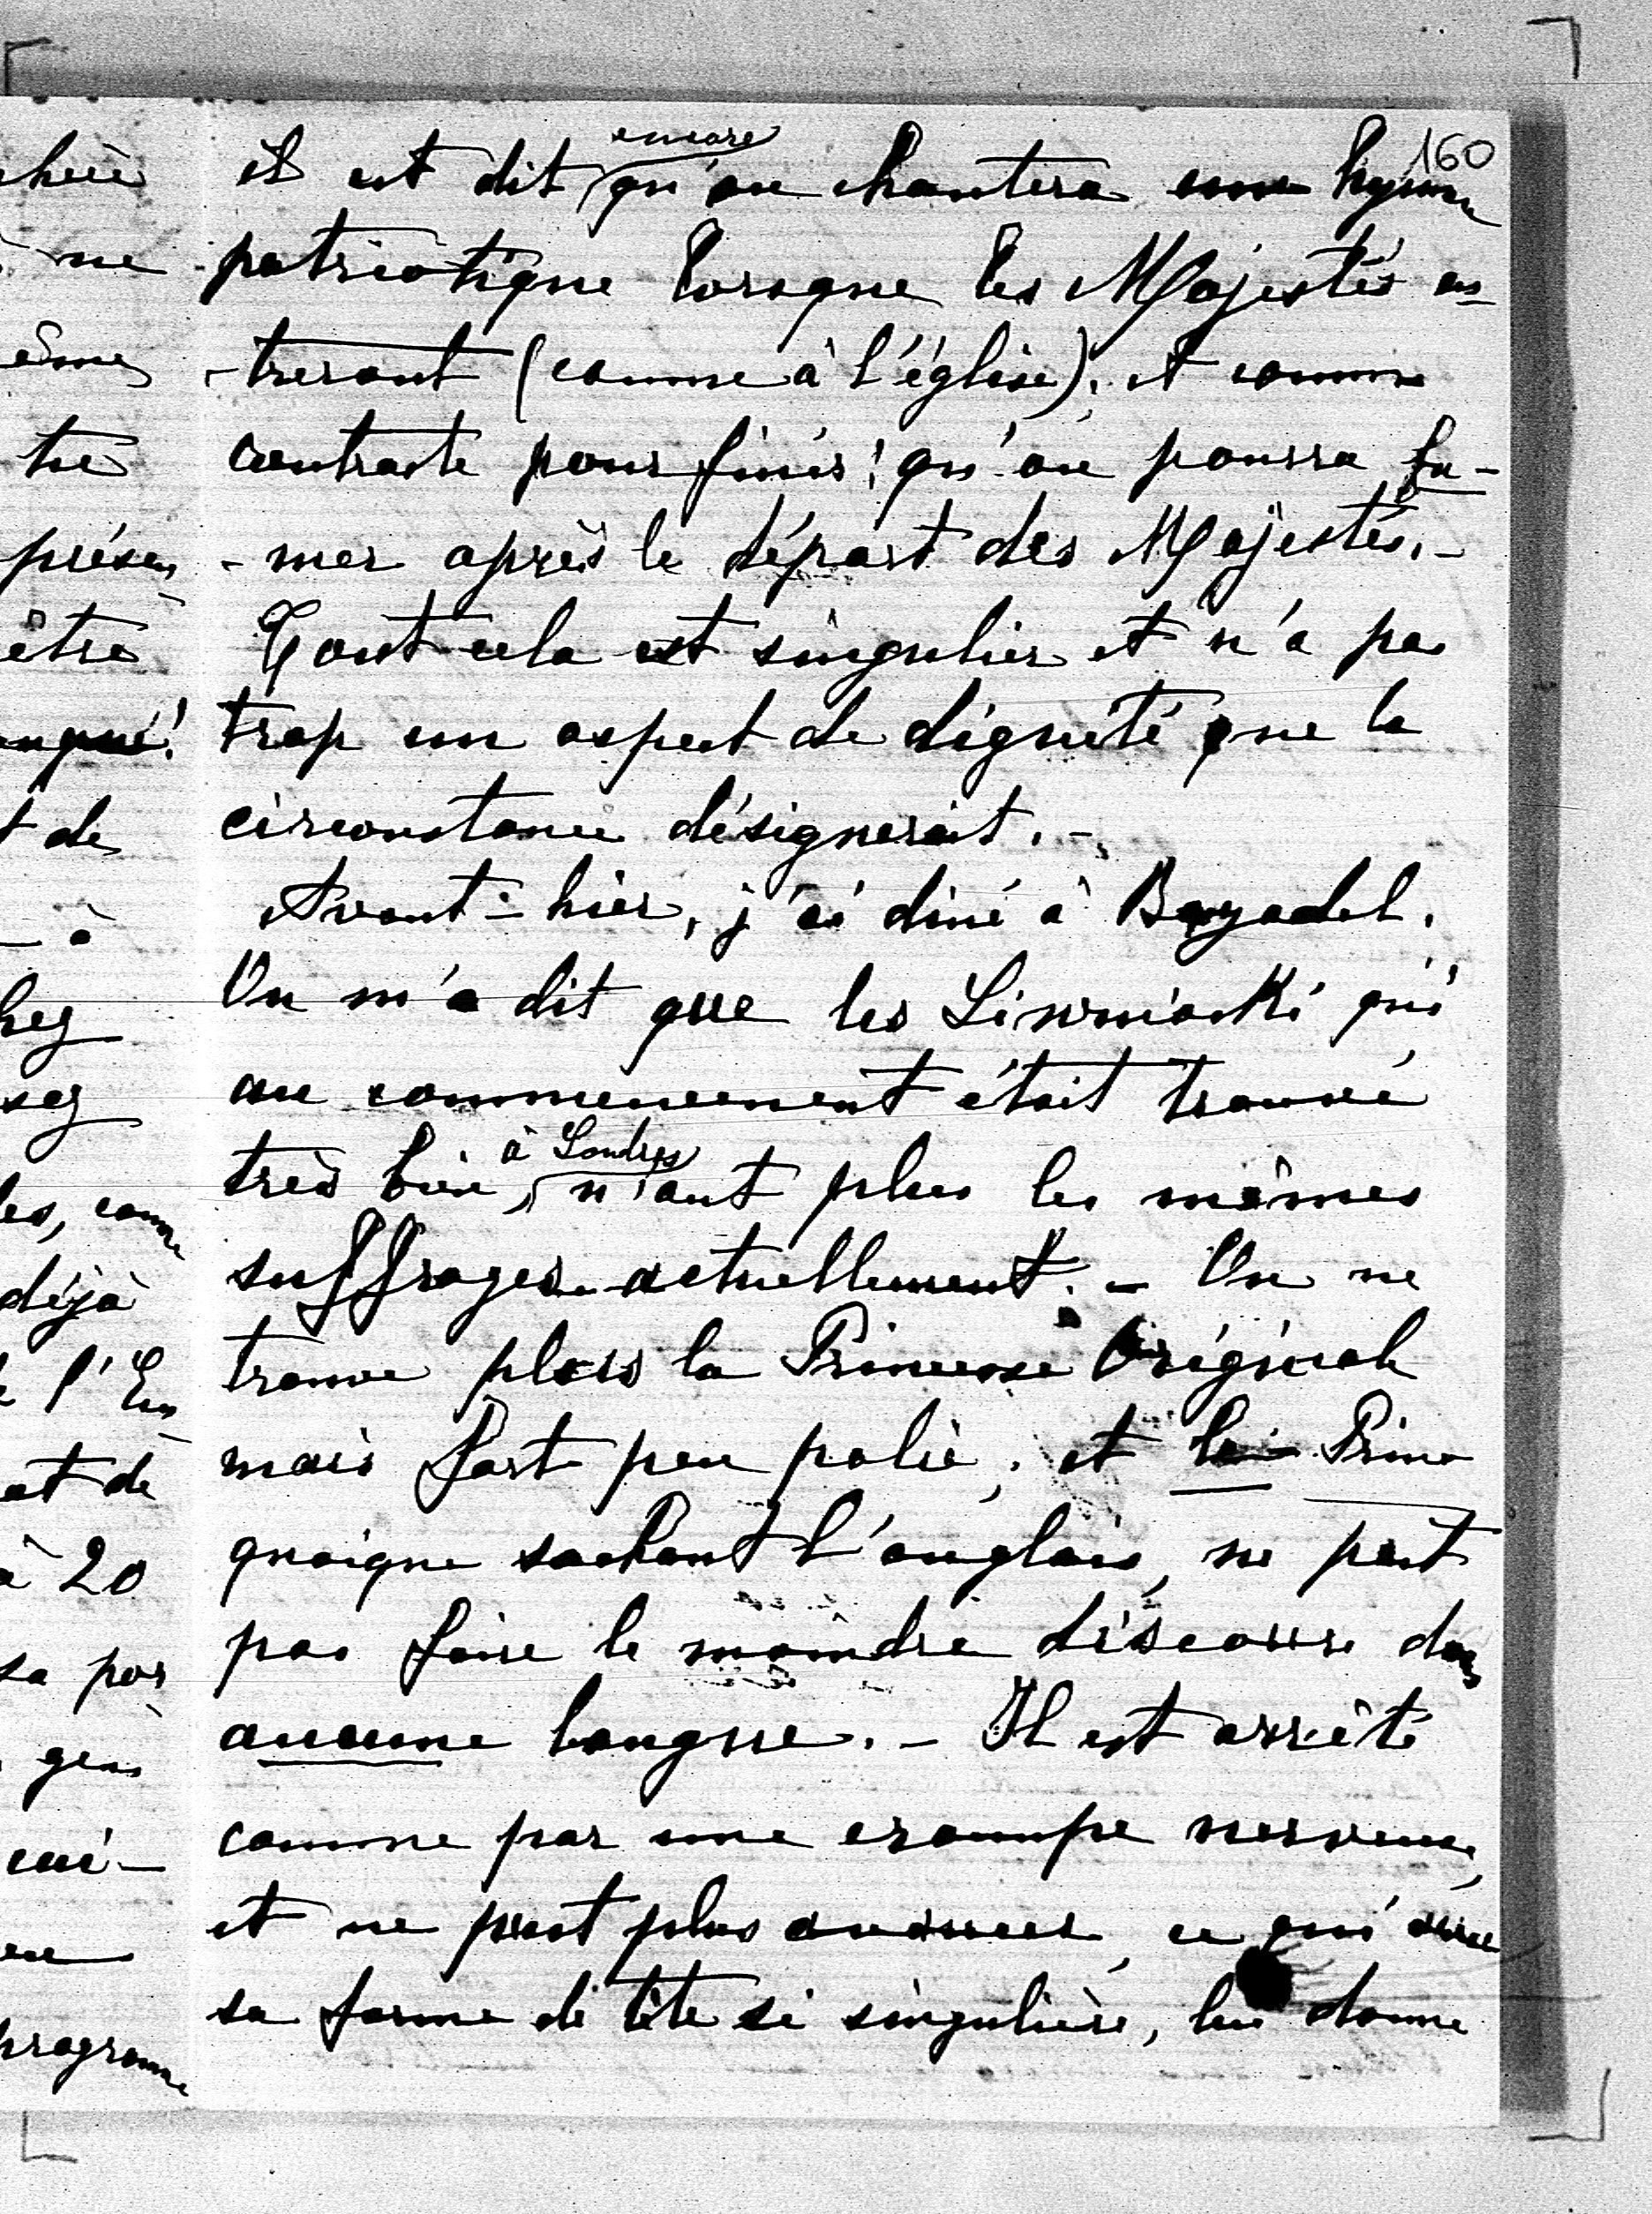 160
il est dit encore qu'on chantera une hymne
patriotique lorsque les Majestés en-
-treront (comme à l'église), et comme
contraste pour finir! qu'on pourra fu-
-mer après le départ des Majestés.-
Tout cela est singulier et n'a pas
trop un aspect de dignité que la
circonstance désignerait.-
Avant-hier, j'ai diné à Bagadel.
On m'a dit que les Lisnowski qui
au commencement était trouvé
très bien, à Londres n'ont plus les mêmes
suffrages actuellement. - On ne
trouve plus la Princesse Originale
mais fort peu polie, et le Prince
quoique sachant l'anglais, ne peut
pas faire le moindre discours dans
aucune langue. - Il est arrêté
comme par une crampe nerveuse,
et ne peut plus avancer, ce qui avec
sa forme de tête si singulière, lui donne
hière
ne
ême
tre
présen
être
t de
- à
hez
sez
les, comme
déjà
l'En
at de
à 20
sa por
gens
cui-
programme